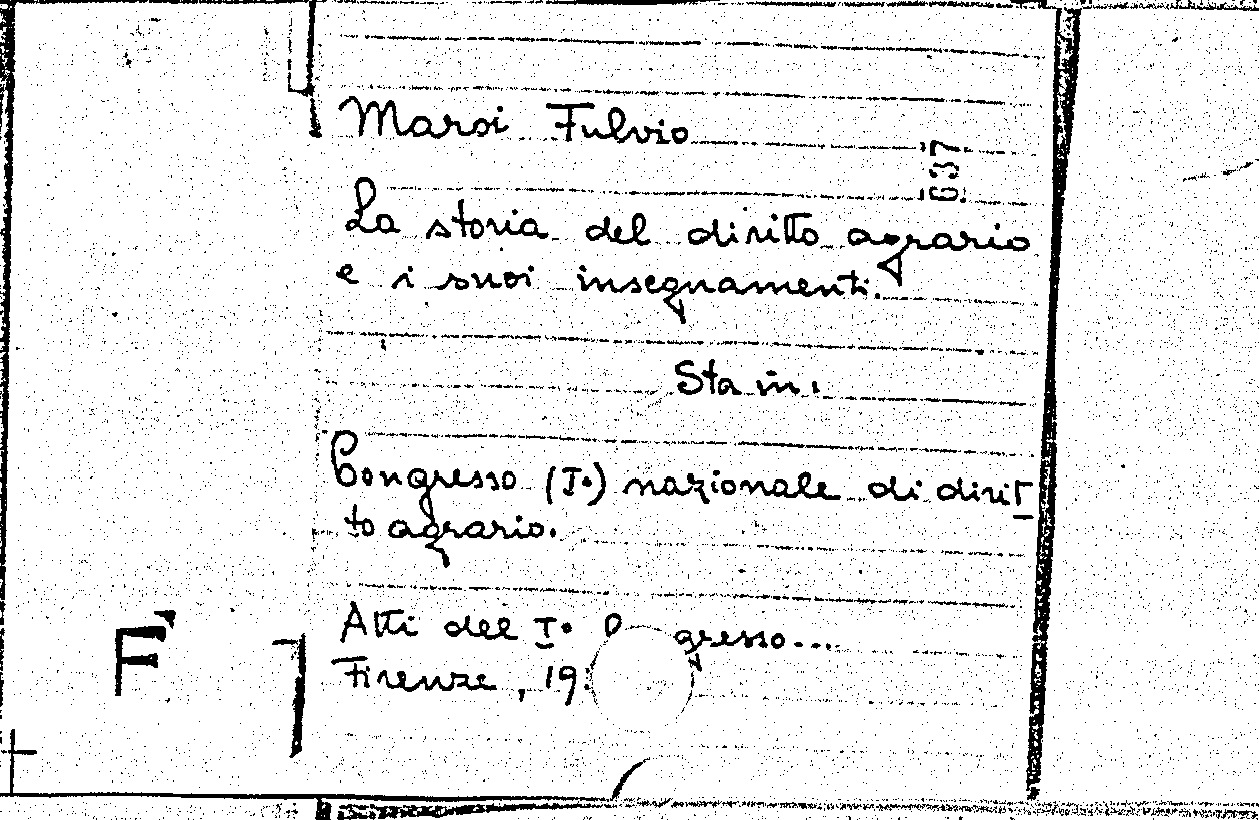 Maroi Fulvio
637
La storia del diritto agrario
e i suoi insegnamenti.
Stam.
Congresso (I°) nazionale di dirit
to agrario.
Atti del I° C gresso...
Firenze, 19
F